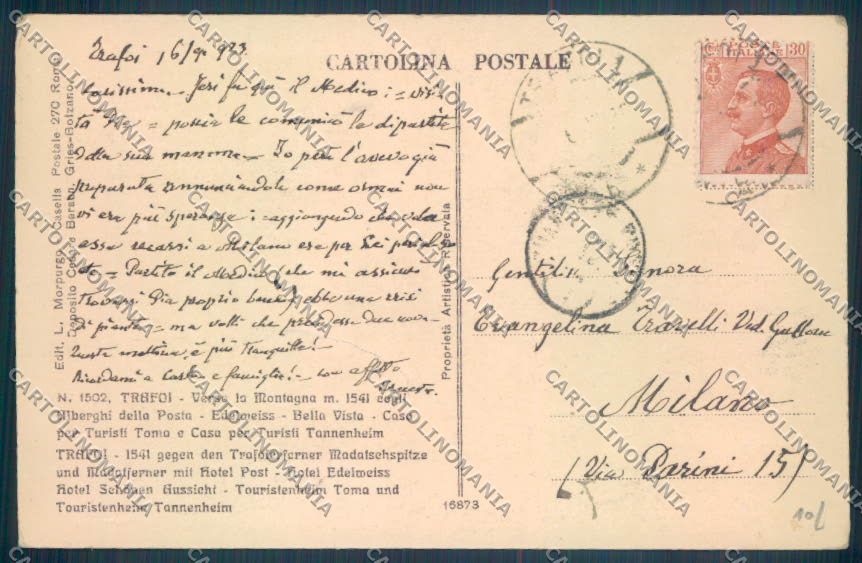 CARTOLINA POSTALE
Trafoi, 16/ 923
Carissima - Ieri fu quì il Medico: = vis-
= possia le comunicò la dipartita
della sua mamma - Io però l'avevo già
preparata annunciandole come ormai non
vi era più speranza: aggiungendo che
essa recarsi a Milano era per Lei
= Partito il Medico (che mi assicurò
trovarsi Pia proprio bene) ebbe una crisi
di pianto = ma volli che prendesse due
mattina, è più tranquilla! -
Ricordami a e famiglia! - con affetto
N. 1502, TRAFOI - Verso la Montagna m. 1541 cogli
Alberghi della Posta - Edelweiss - Bella Vista - Casa
per Turisti Toma e Casa per Turisti Tannenheim
TRAFOI - 1541 gegen den Trafoierferner Madatschspitze
und Madatferner mit Hotel Post - Hotel Edelweiss
Hotel Schönen Aussicht - Touristenheim Toma und
Touristenheim Tannenheim
16873
Edit. L. Morpurgo, Casella Postale 270 Roma
Deposito Cesare Gries-Bolzano
Proprietà Artistica Riservata
POSTE ITALIANE
C. 30
Gentilis. Signora
Evangelina Travelli Ved.
Milano
(Via Parini 15)
10/
CARTOLINOMANIA